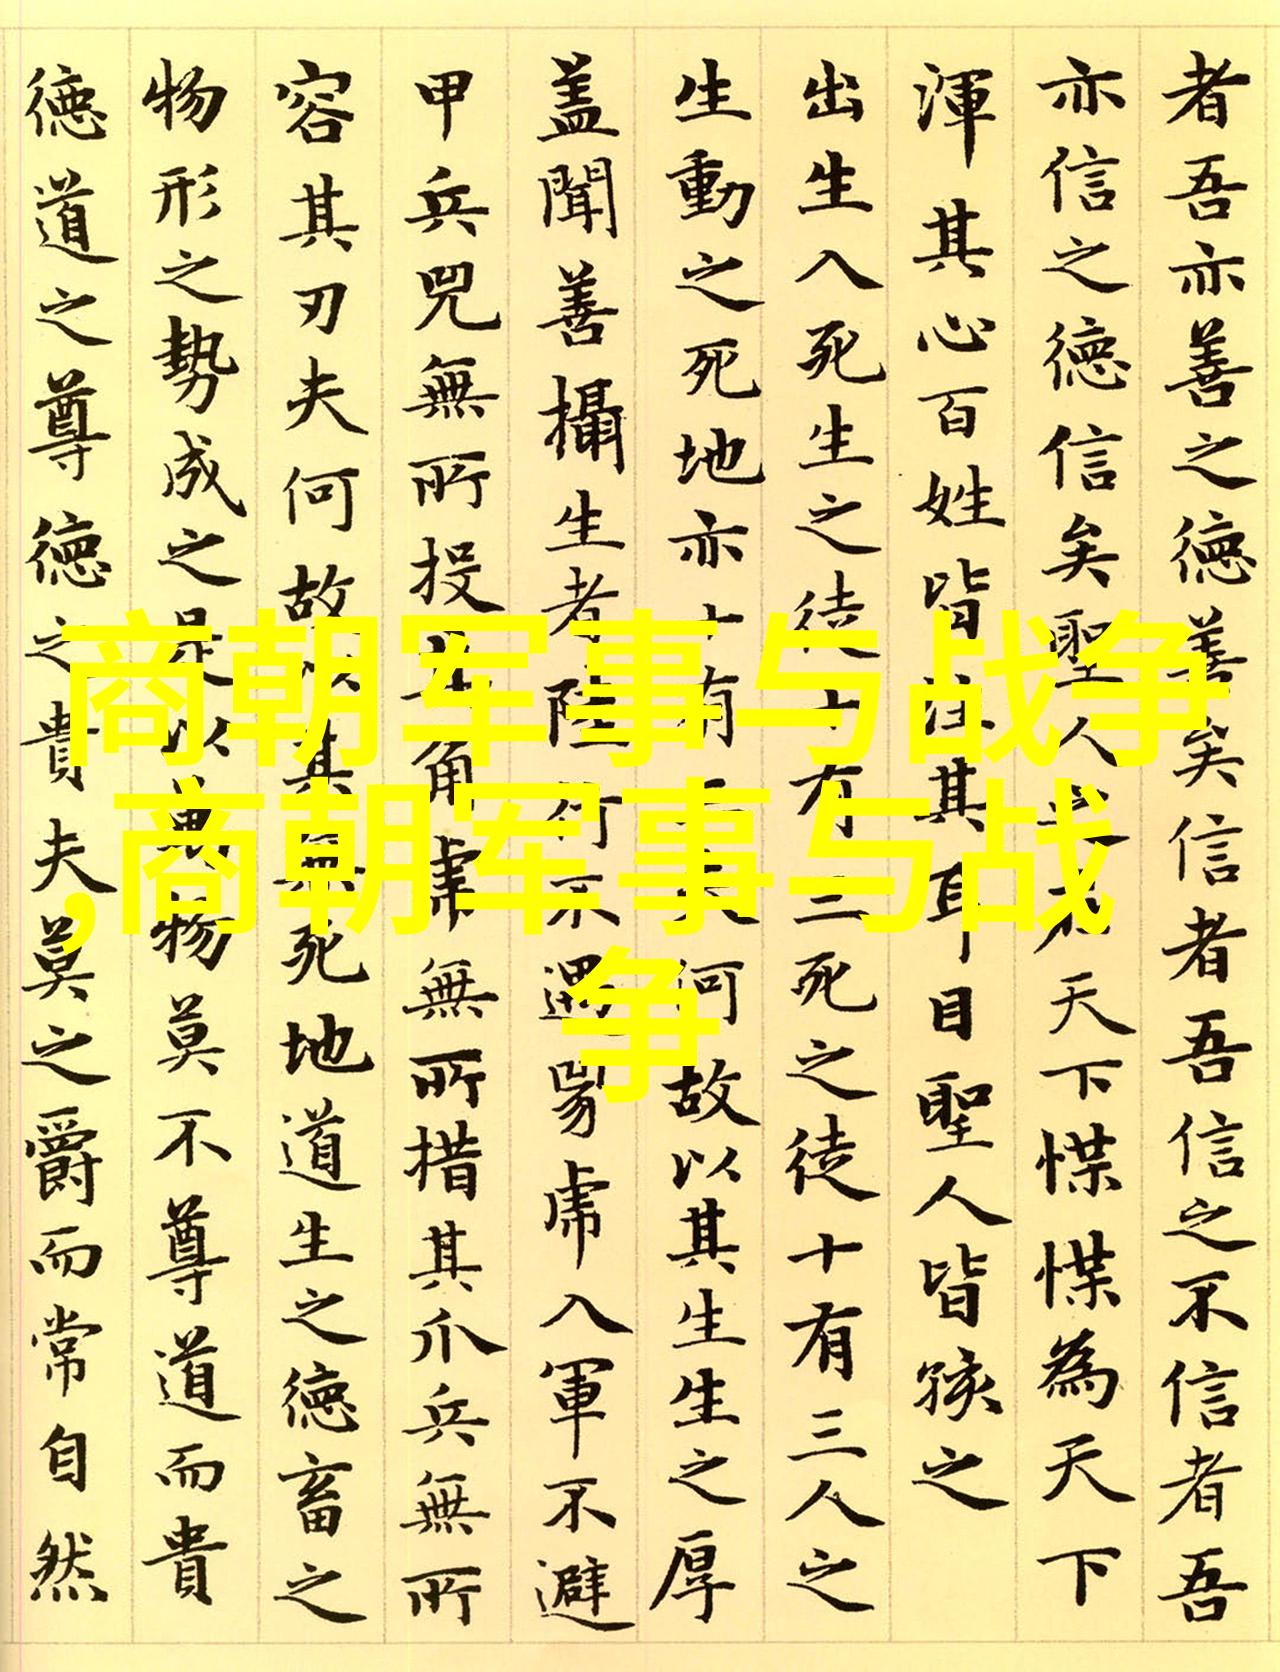 者吾亦善之德善矣信者吾信之不信者吾
亦信之德信矣聖人之在天下惵惵為天下
渾其心百姓皆注其耳目聖人皆孩之
出生入死生之徒十有三死之徒十有三人之
生動之死地亦十有三夫何故以其生生之厚
蓋聞善攝生者陸行不遇兕虎入軍不避
甲兵兕無所投其角虎無所措其爪兵無所
容其刃夫何故以其無死地道生之德畜之
物形之勢成之是以萬物莫不尊道而貴
德道之尊德之貴夫莫之爵而常自然
商朝军事与战争
,商朝军事与战
争